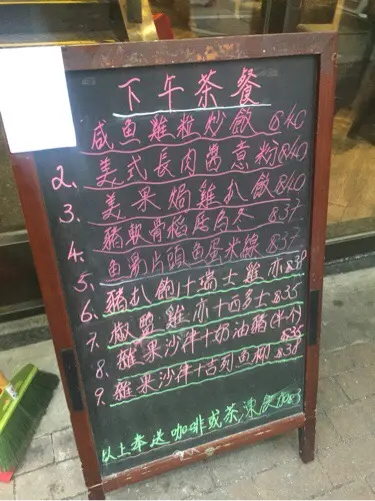 下午茶餐
咸魚雞粒炒飯 $40
2. 美式長肉醬意粉 $40
3. 美果焗雞扒飯 $40
4. 豬軟骨稻庭烏冬 $37
5. 魚片頭魚蛋米線 $37
6. 豬扒飽+瑞士雞亦 $39
7. 椒鹽雞亦+西多士 $35
8. 雜果沙律+奶油豬(半个) $35
9. 雜果沙律+吉列魚柳 $38
以上奉送咖啡或茶凍加$3